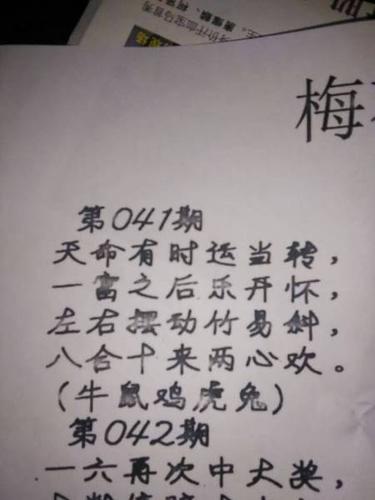 梅
第041期
天命有时运当转，
一富之后乐开怀，
左右摆动竹易斜，
八合十来两心欢。
（牛鼠鸡虎兔）
第042期
一六再次中大奖，